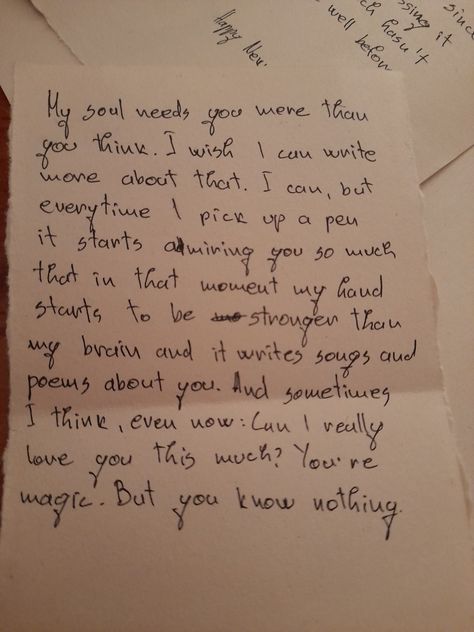 Happy New
ssing it
ch hasn't
well before
since
My soul needs you more than
you think. I wish I can write
more about that. I can, but
everytime I pick up a pen
it starts admiring you so much
that in that moment my hand
starts to be stronger than
my brain and it writes songs and
poems about you. And sometimes
I think, even now: Can I really
love you this much? You're
magic. But you know nothing.